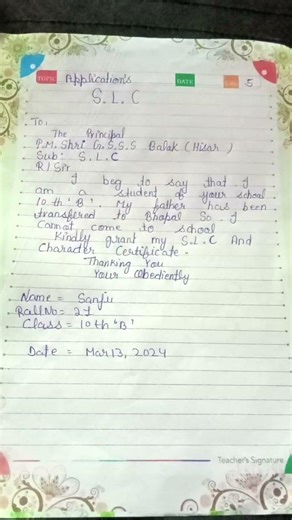 TOPIC Applications DATE 5
S.L.C
To,
The Principal
P.M. Shri G.S.S.S Balak (Hisar)
Sub: S.L.C
R/Sir
I beg to say that I
am a student of your school
10th 'B'. My father has been
transfered to Bhopal So I
Cannot come to school
Kindly grant my S.L.C And
Character Certificate.
Thanking You
Your Obediently
Name = Sanju
Roll No = 21
Class = 10th 'B'
Date = Mar 13, 2024
Teacher's Signature